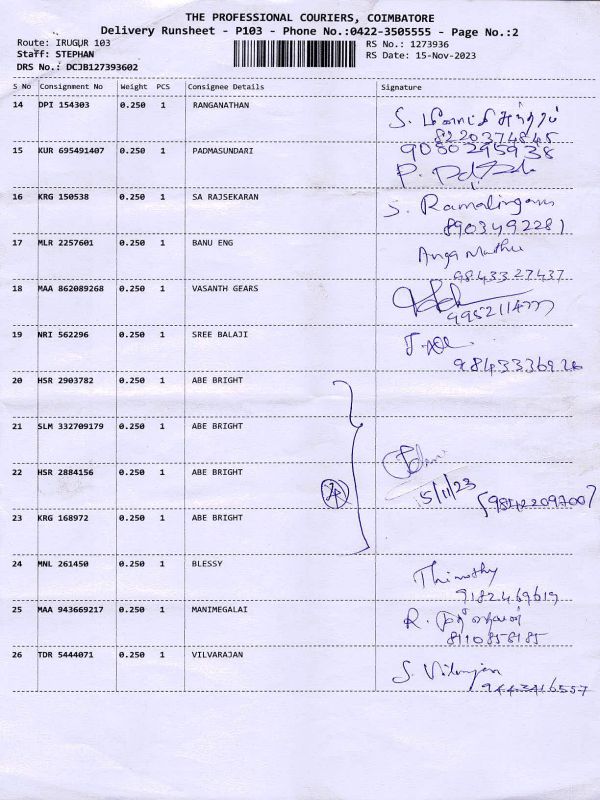 THE PROFESSIONAL COURIERS, COIMBATORE
Delivery Runsheet - P103 - Phone No.:0422-3505555 - Page No.:2
Route: IRUGUR 103
RS No.: 1273936
Staff: STEPHAN
RS Date: 15-Nov-2023
DRS No.: DCJB127393602
S No Consignment No Weight PCS Consignee Details Signature
14 DPI 154303 0.250 1 RANGANATHAN
S.
8220374845
15 KUR 695491407 0.250 1 PADMASUNDARI 9080295938
P.
16 KRG 150538 0.250 1 SA RAJSEKARAN S. Ramalingam
8903492281
17 MLR 2257601 0.250 1 BANU ENG
9843327437
18 MAA 862089268 0.250 1 VASANTH GEARS
19 NRI 562296 0.250 1 SREE BALAJI
9843336926
20 HSR 2903782 0.250 1 ABE BRIGHT
21 SLM 332709179 0.250 1 ABE BRIGHT
22 HSR 2884156 0.250 1 ABE BRIGHT
15/11/23
9842209700
23 KRG 168972 0.250 1 ABE BRIGHT
24 MNL 261450 0.250 1 BLESSY Thimothy
9182469619
25 MAA 943669217 0.250 1 MANIMEGALAI R.
8110858185
26 TDR 5444071 0.250 1 VILVARAJAN S.
9443416557